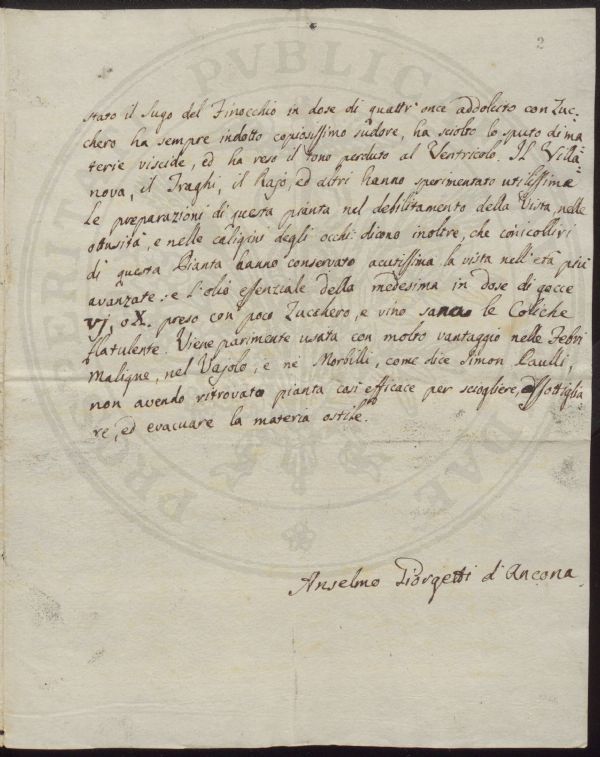 2
stato il Sugo del Finocchio in dose di quattr' once addolcito con Zuc=
chero ha sempre indotto copiosissimo sudore, ha sciolto lo sputo di ma=
terie viscide, ed ha reso il tono perduto al Ventricolo. Il Villa=
nova, il Traghi, il Rajo, ed altri hanno sperimentato utilissime
le preparazioni di questa pianta nel debilitamento della Vista, nelle
ottusità, e nelle caligini degli occhi: dicono inoltre, che coi collirj
di questa Pianta hanno conservato acutissima la vista nell'età più
avanzate: e l'olio essenziale della medesima in dose di gocce
vj, o X. preso con poco Zucchero, e vino sana le Coliche
flatulente. Viene parimente usata con molto vantaggio nelle Febri
Maligne, nel Vajolo, e ne Morbilli, come dice Simon Paulli,
non avendo ritrovato pianta così efficace per sciogliere, assottiglia
re, ed evacuare la materia ostile.
Anselmo Giorgetti d'Ancona
PVBLIC
PROSPERI
DAE